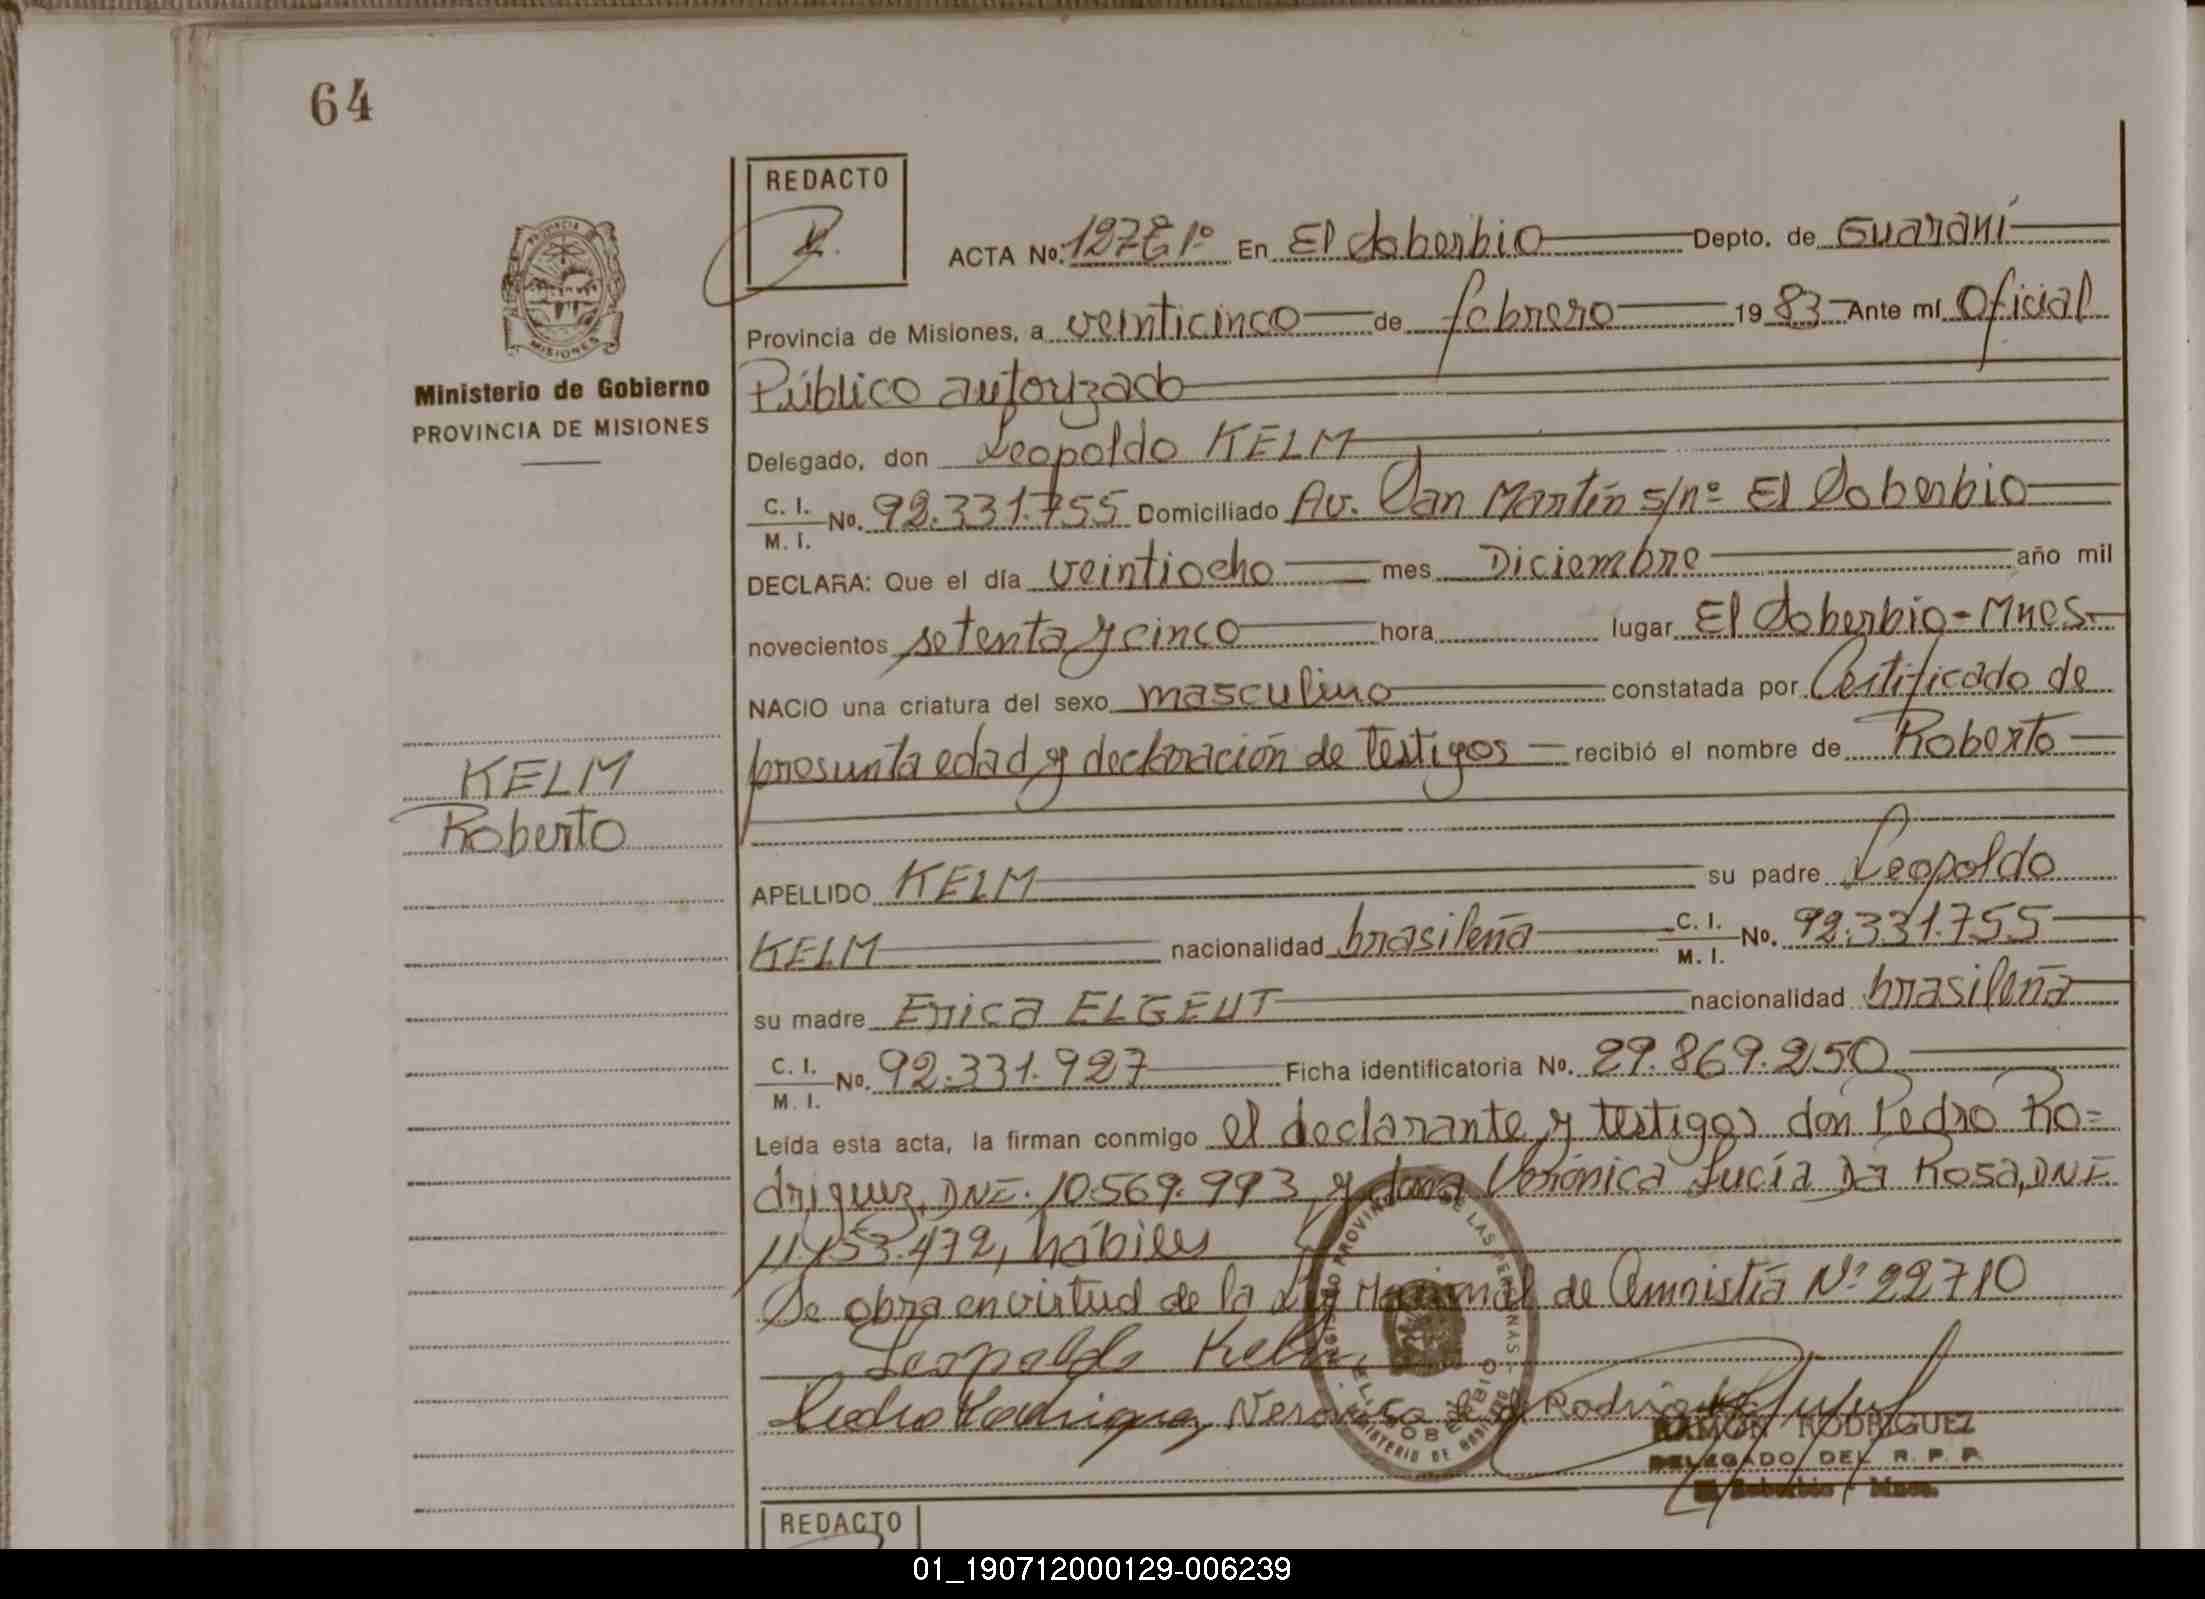 64
REDACTO
ACTA No. 127 En El Soberbio Depto. de Guaraní
Provincia de Misiones, a veinticinco de febrero 1983 Ante mí Oficial
Ministerio de Gobierno
PROVINCIA DE MISIONES
Público autorizado
Delegado, don Leopoldo KELM
C. I.
M. I. No. 92.331.755 Domiciliado Av. San Martín s/nº El Soberbio
DECLARA: Que el día veintiocho mes Diciembre año mil
novecientos setenta y cinco hora lugar El Soberbio-Mnes
NACIO una criatura del sexo masculino constatada por Certificado de
presunta edad y declaración de testigos recibió el nombre de Roberto
KELM
Roberto
APELLIDO KELM su padre Leopoldo
KELM nacionalidad brasileña C. I. M. I. No. 92.331.755
su madre Erica ELGEUT nacionalidad brasileña
C. I.
M. I. No. 92.331.927 Ficha identificatoria No. 29.869.250
Leída esta acta, la firman conmigo el declarante y testigos don Pedro Ro=
driguez, DNI. 10.569.993 y doña Verónica Lucía Da Rosa, DNI.
11.153.472, hábiles
Se obra en virtud de la Ley Nacional de Amnistía Nº 22710
Leopoldo Kelm
Pedro Rodriguez Veronica L. d Rodriguez
RAMON RODRIGUEZ
DELEGADO DEL R. P. P.
El Soberbio - Mnes.
REGISTRO PROVINCIAL DE LAS PERSONAS
EL SOBERBIO
MINISTERIO DE GOBIERNO
PROVINCIA DE
MISIONES
REDACTO
01_190712000129-006239